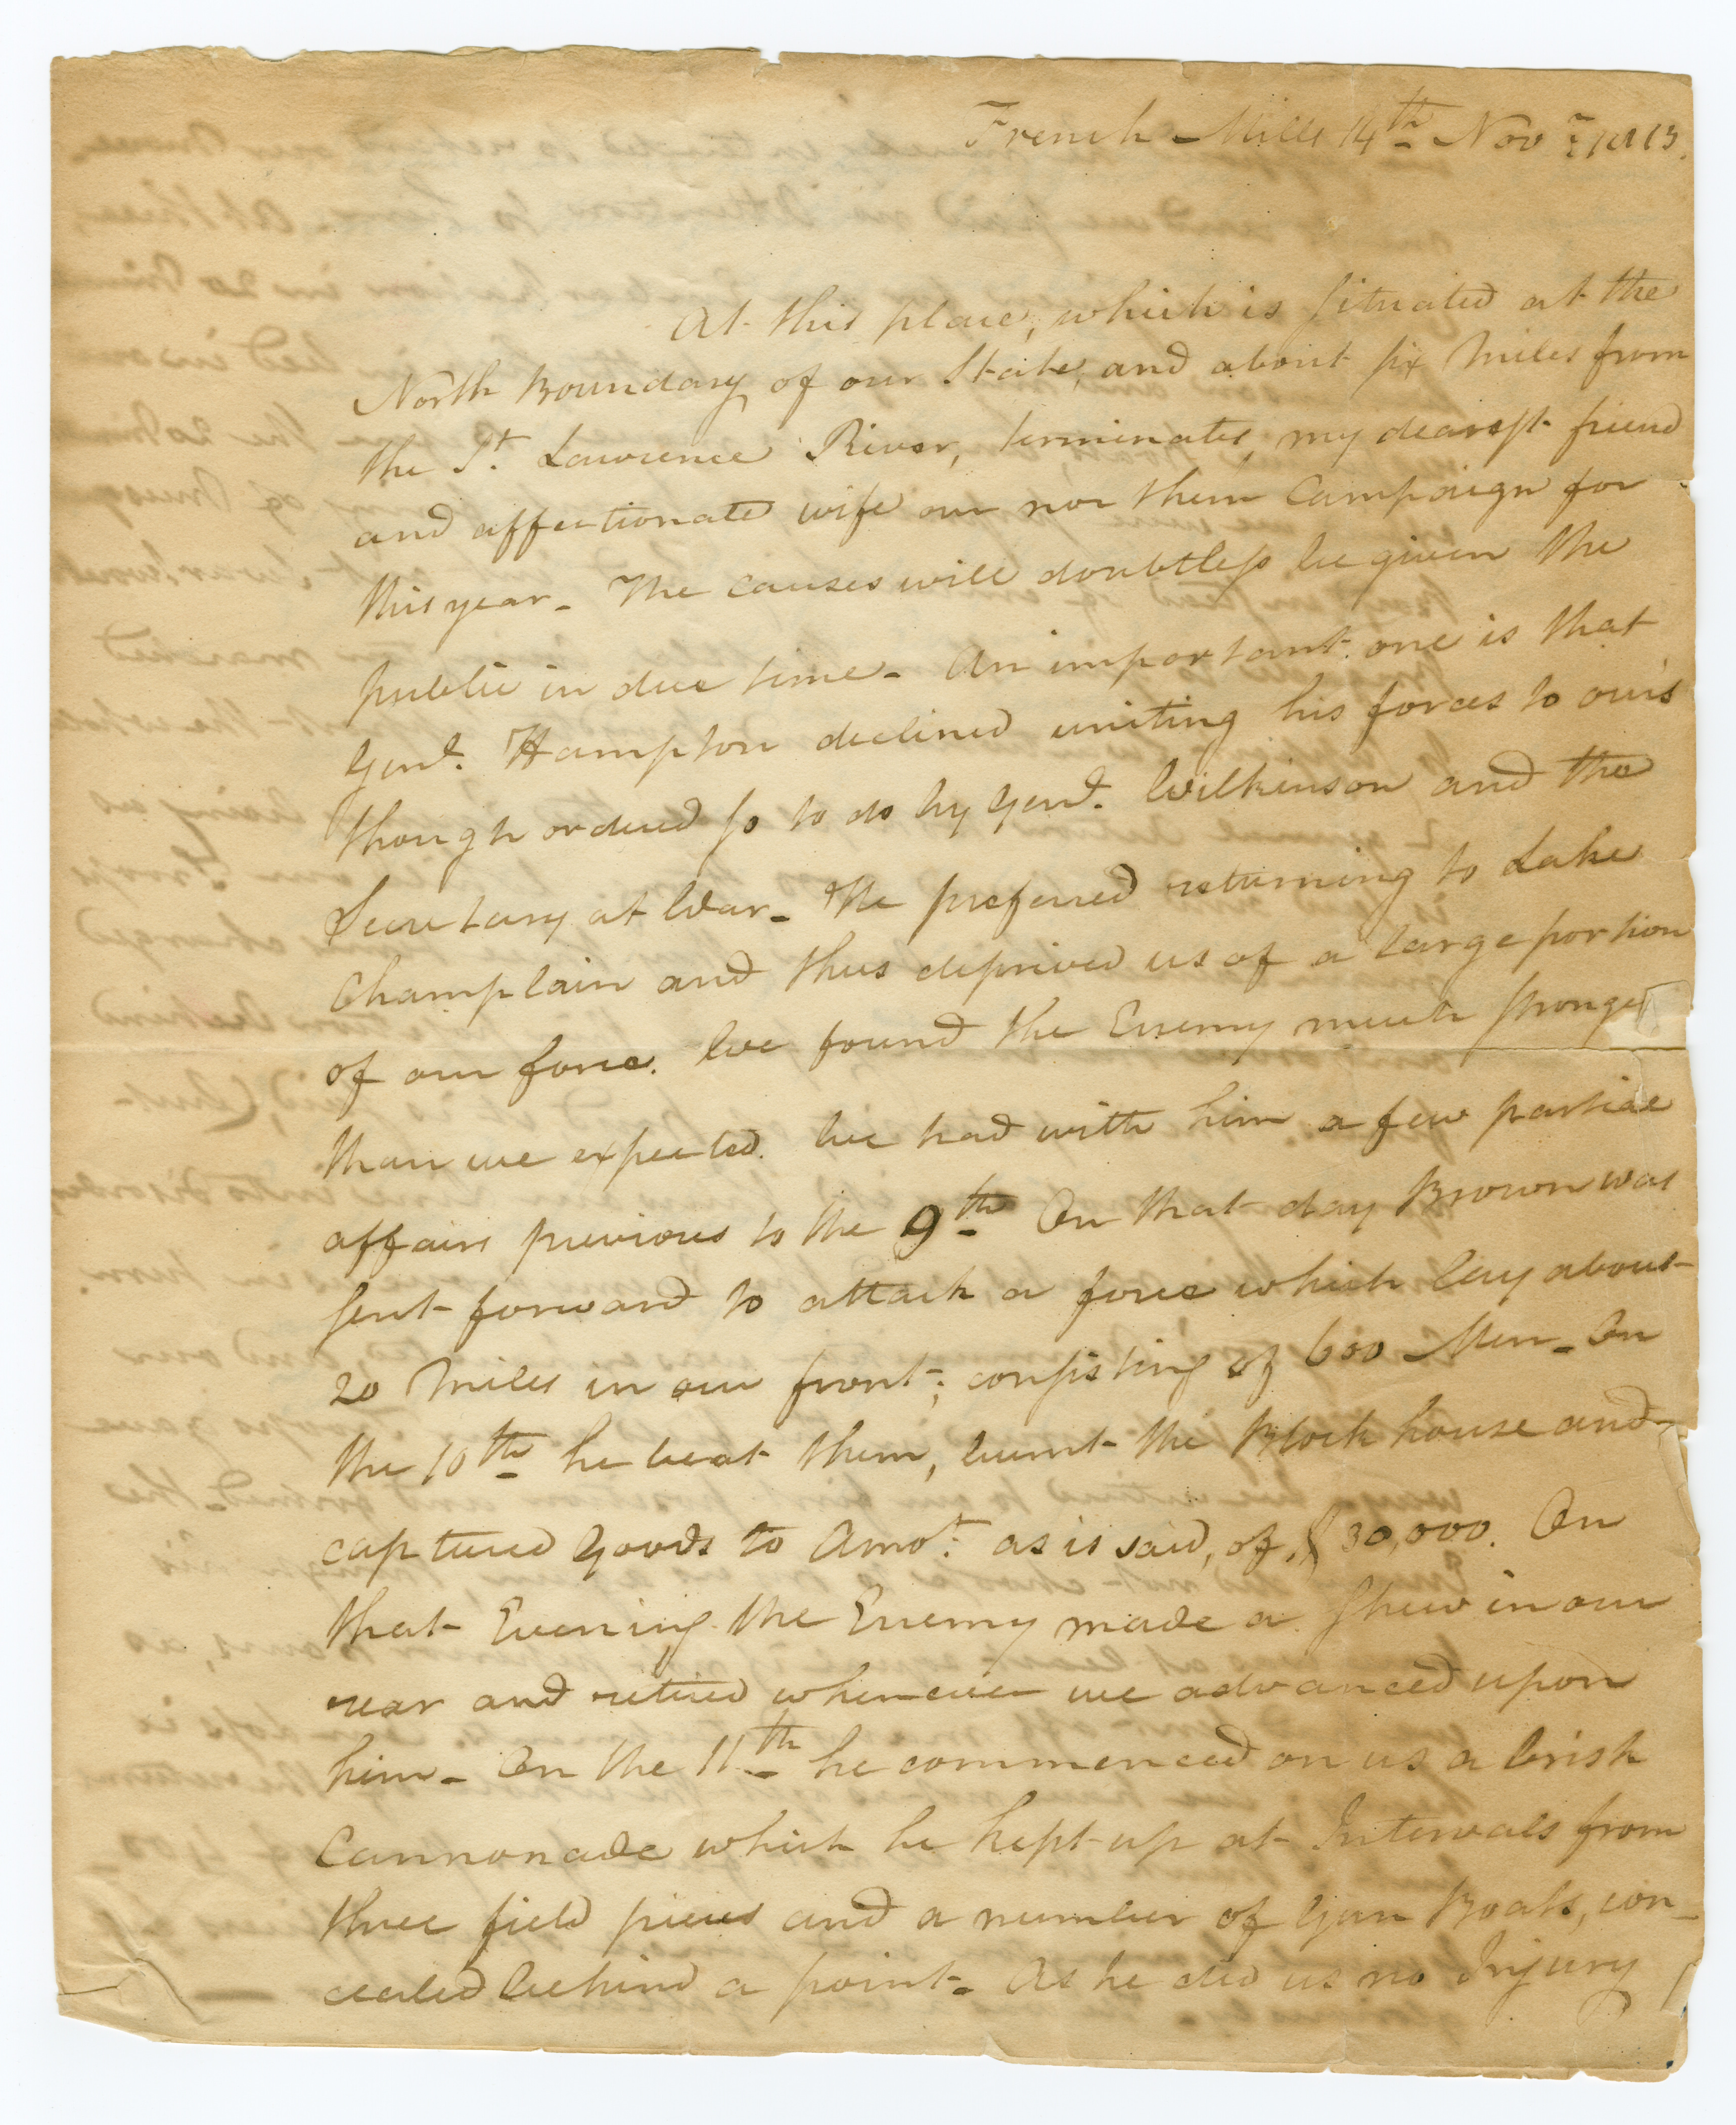 French Mills 14th Novr. 1813.
At this place, which is situated at the
North Boundary of our State, and about six Miles from
the St. Lawrence River, terminates, my dearest friend
and affectionate wife our northern Campaign for
this year - The causes will doubtless be given the
public in due time - An important one is that
Genl. Hampton declined uniting his forces to ours
though ordered so to do by Genl. Wilkinson and the
Secretary at War - He preferred returning to Lake
Champlain and thus deprived us of a large portion
of our force. We found the Enemy much stronger
than we expected. We had with him a few partial
affairs previous to the 9th On that day Brown was
sent forward to attack a force which lay about
20 Miles in our front; consisting of 600 Men - On
the 10th he beat them, burnt the Block house and
captured Goods to Amot. as is said, of $30,000. On
that Evening the Enemy made a shew in our
rear and retired whenever we advanced upon
him - On the 11th he commenced on us a brisk
Cannonade which he kept up at Intervals from
three field pieces and a number of Gun Boats, con-
cealed behind a point - As he did us no Injury